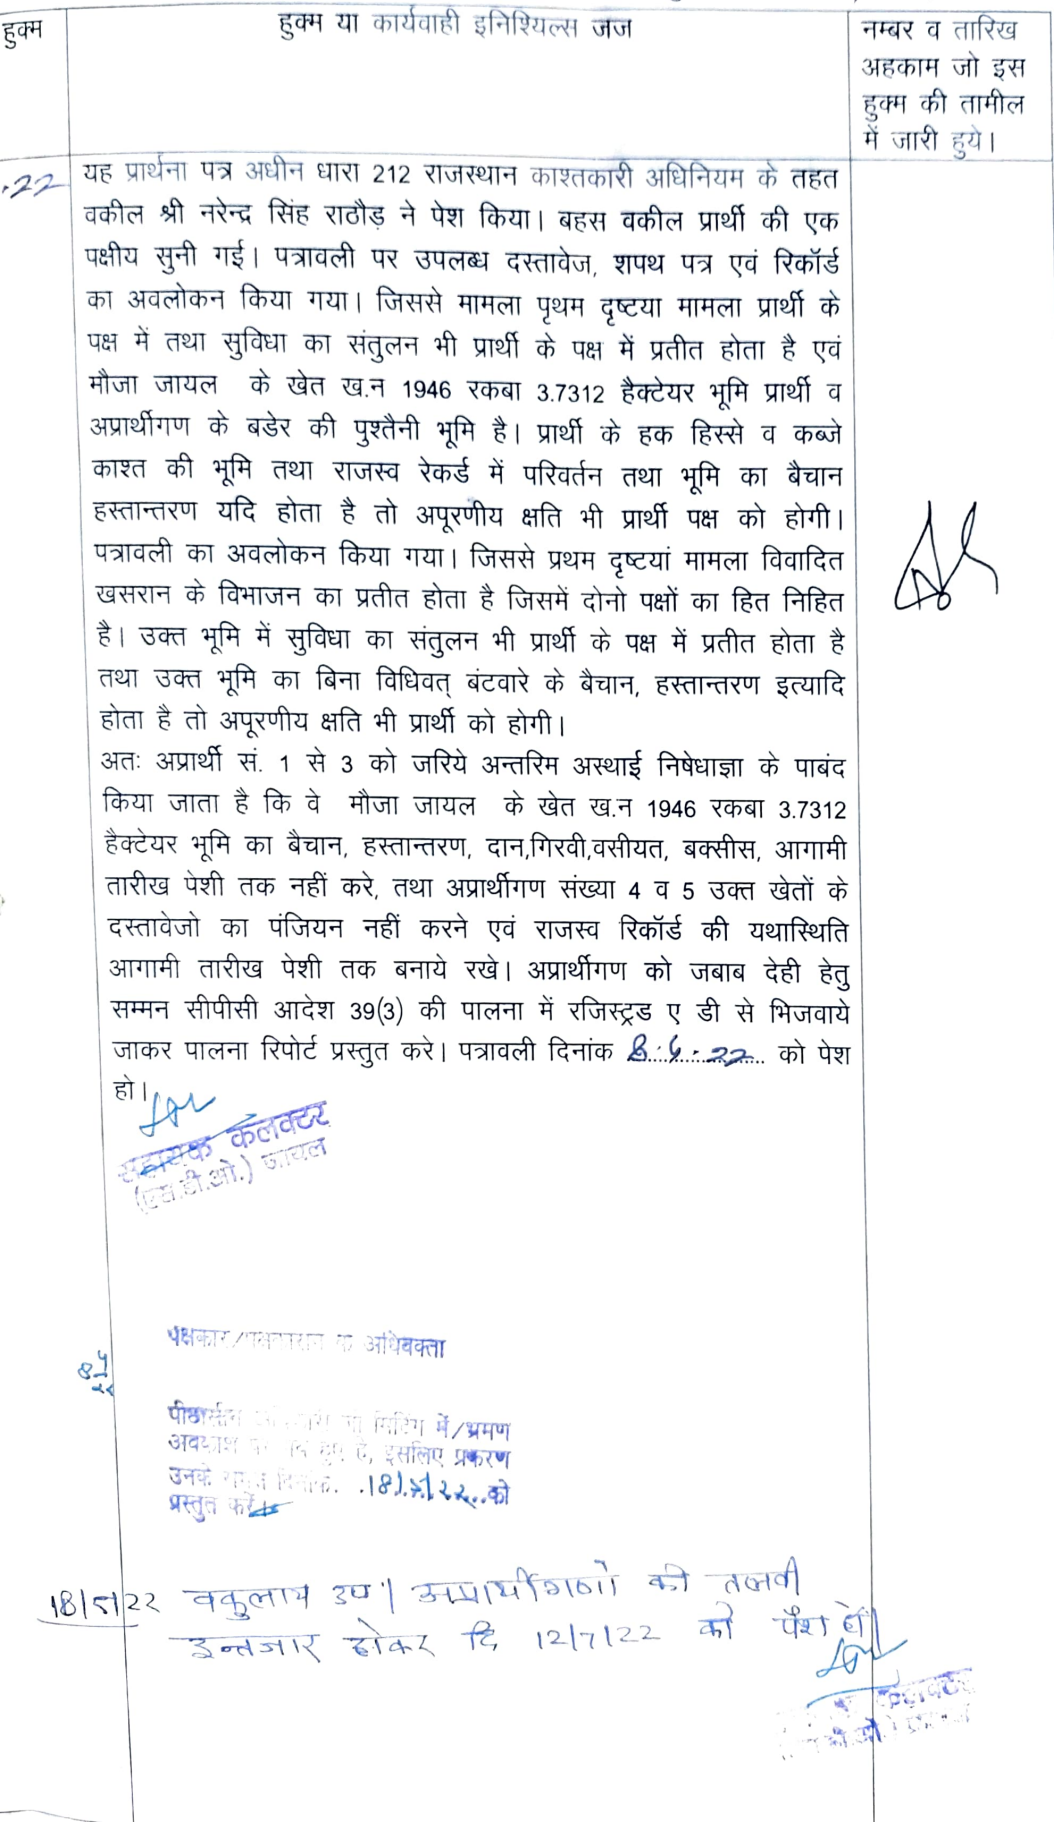 हुक्म
हुक्म या कार्यवाही इनिशियल्स जज
नम्बर व तारिख
अहकाम जो इस
हुक्म की तामील
में जारी हुये।
.22
यह प्रार्थना पत्र अधीन धारा 212 राजस्थान काश्तकारी अधिनियम के तहत
वकील श्री नरेन्द्र सिंह राठौड़ ने पेश किया। बहस वकील प्रार्थी की एक
पक्षीय सुनी गई। पत्रावली पर उपलब्ध दस्तावेज, शपथ पत्र एवं रिकॉर्ड
का अवलोकन किया गया। जिससे मामला पृथम दृष्टया मामला प्रार्थी के
पक्ष में तथा सुविधा का संतुलन भी प्रार्थी के पक्ष में प्रतीत होता है एवं
मौजा जायल के खेत ख.न 1946 रकबा 3.7312 हैक्टेयर भूमि प्रार्थी व
अप्रार्थीगण के बडेर की पुश्तैनी भूमि है। प्रार्थी के हक हिस्से व कब्जे
काश्त की भूमि तथा राजस्व रेकर्ड में परिवर्तन तथा भूमि का बैचान
हस्तान्तरण यदि होता है तो अपूरणीय क्षति भी प्रार्थी पक्ष को होगी।
पत्रावली का अवलोकन किया गया। जिससे प्रथम दृष्टयां मामला विवादित
खसरान के विभाजन का प्रतीत होता है जिसमें दोनो पक्षों का हित निहित
है। उक्त भूमि में सुविधा का संतुलन भी प्रार्थी के पक्ष में प्रतीत होता है
तथा उक्त भूमि का बिना विधिवत् बंटवारे के बैचान, हस्तान्तरण इत्यादि
होता है तो अपूरणीय क्षति भी प्रार्थी को होगी।
अतः अप्रार्थी सं. 1 से 3 को जरिये अन्तरिम अस्थाई निषेधाज्ञा के पाबंद
किया जाता है कि वे मौजा जायल के खेत ख.न 1946 रकबा 3.7312
हैक्टेयर भूमि का बैचान, हस्तान्तरण, दान,गिरवी,वसीयत, बक्सीस, आगामी
तारीख पेशी तक नहीं करे, तथा अप्रार्थीगण संख्या 4 व 5 उक्त खेतों के
दस्तावेजो का पंजियन नहीं करने एवं राजस्व रिकॉर्ड की यथास्थिति
आगामी तारीख पेशी तक बनाये रखे। अप्रार्थीगण को जबाब देही हेतु
सम्मन सीपीसी आदेश 39(3) की पालना में रजिस्ट्रड ए डी से भिजवाये
जाकर पालना रिपोर्ट प्रस्तुत करे। पत्रावली दिनांक ........22.... को पेश
हो।
सहायक कलक्टर
(एस.डी.ओ.) जायल
पक्षकार/पक्षकारान के अधिवक्ता
पीठासीन मिटिंग में/भ्रमण
अवकाश पर है, इसलिए प्रकरण
उनके समक्ष दिनांक. .18/5/22..को
प्रस्तुत करें
18/5/22 वकुलाय उप। अप्रार्थीगणो की तलवी
इन्तजार होकर दि 12/7/22 को पेश हो।
कलक्टर